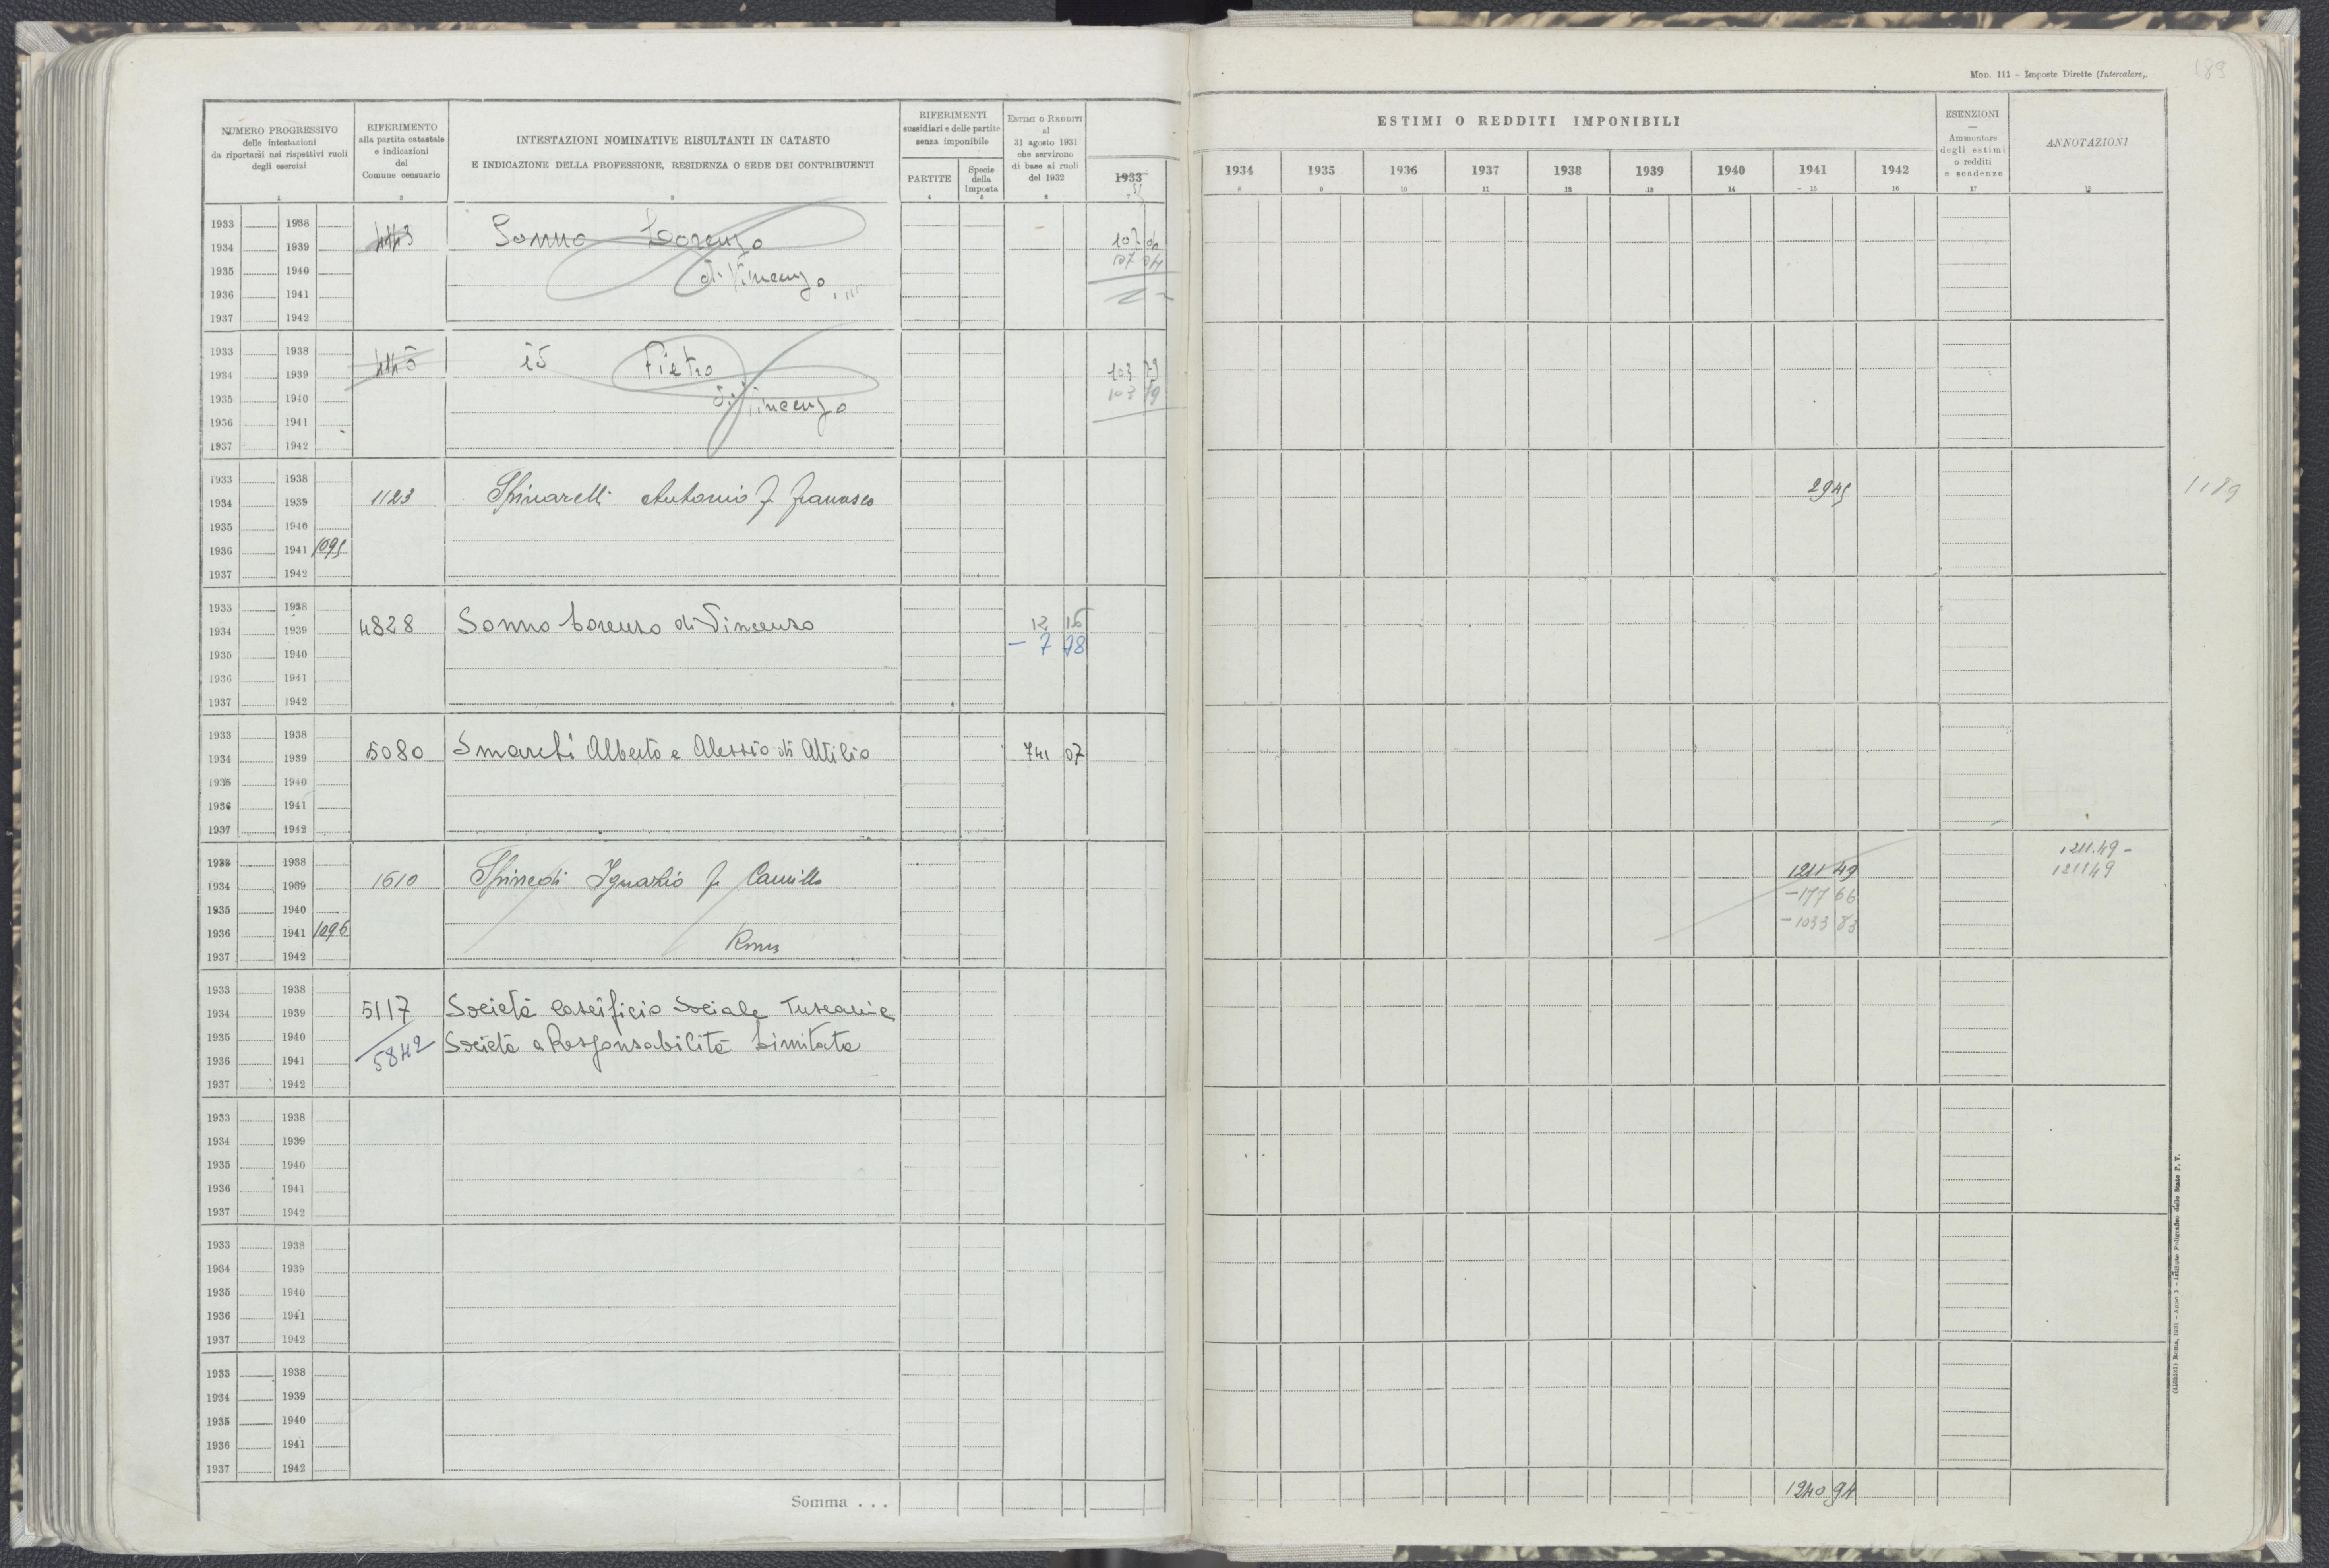 Mod. 111 - Imposte Dirette (Intercalare).
189
NUMERO PROGRESSIVO
delle intestazioni
da riportarsi nei rispettivi ruoli
degli esercizi
1
RIFERIMENTO
alla partita catastale
e indicazioni
del
Comune censuario
2
INTESTAZIONI NOMINATIVE RISULTANTI IN CATASTO
E INDICAZIONE DELLA PROFESSIONE, RESIDENZA O SEDE DEI CONTRIBUENTI
3
RIFERIMENTI
sussidiari e delle partite
senza imponibile
PARTITE
4
Specie
della
Imposta
5
ESTIMI O REDDITI
al
31 agosto 1931
che servirono
di base ai ruoli
del 1932
6
1933
ESTIMI O REDDITI IMPONIBILI
1934 1935 1936 1937 1938 1939 1940 1941 1942
8 9 10 11 12 13 14 15 16
ESENZIONI
Ammontare
degli estimi
o redditi
e scadenze
17
ANNOTAZIONI
18
1933 1938
1934 1939 4443 Sonno Lorenzo 107 04
1935 1940 di Vincenzo 107 04
1936 1941
1937 1942
1933 1938
1934 1939 id Pietro 103 79
1935 1940 di Vincenzo 103 79
1936 1941
1937 1942
1933 1938
1934 1939 1123 Spinarelli Antonio f Francesco 29 45 1189
1935 1940
1936 1941 1095
1937 1942
1933 1938
1934 1939 4828 Sonno Lorenzo di Vincenzo 12 15
1935 1940 - 7 78
1936 1941
1937 1942
1933 1938
1934 1939 5080 Smarchi Alberto e Alessio di Attilio 741 07
1935 1940
1936 1941
1937 1942
1933 1938 1211.49 -
1934 1939 1610 Spinedi Ignazio f Camillo 1211 49 1211 49
1935 1940 - 177 66
1936 1941 1096 Roma - 1033 83
1937 1942
1933 1938
1934 1939 5117 Società Caseificio Sociale Tuscania
1935 1940 5842 Società a Responsabilità Limitata
1936 1941
1937 1942
1933 1938
1934 1939
1935 1940
1936 1941
1937 1942
1933 1938
1934 1939
1935 1940
1936 1941
1937 1942
1933 1938
1934 1939
1935 1940
1936 1941
1937 1942
Somma . . . 1240 94
Roma, 1931 - Anno X - Istituto Poligrafico dello Stato P. V.